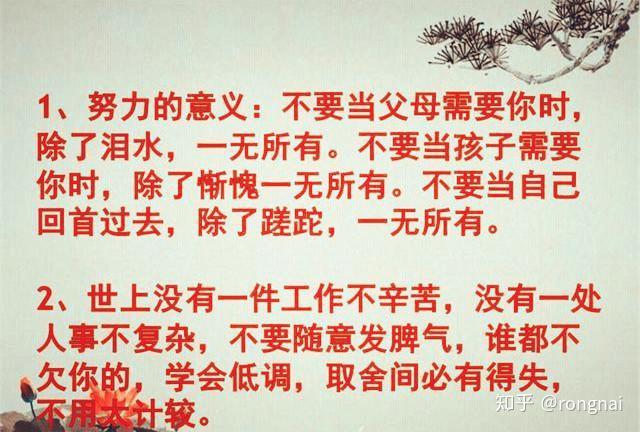 1、努力的意义：不要当父母需要你时，
除了泪水，一无所有。不要当孩子需要
你时，除了惭愧一无所有。不要当自己
回首过去，除了蹉跎，一无所有。
2、世上没有一件工作不辛苦，没有一处
人事不复杂，不要随意发脾气，谁都不
欠你的，学会低调，取舍间必有得失，
不用太计较。
知乎 @rongnai